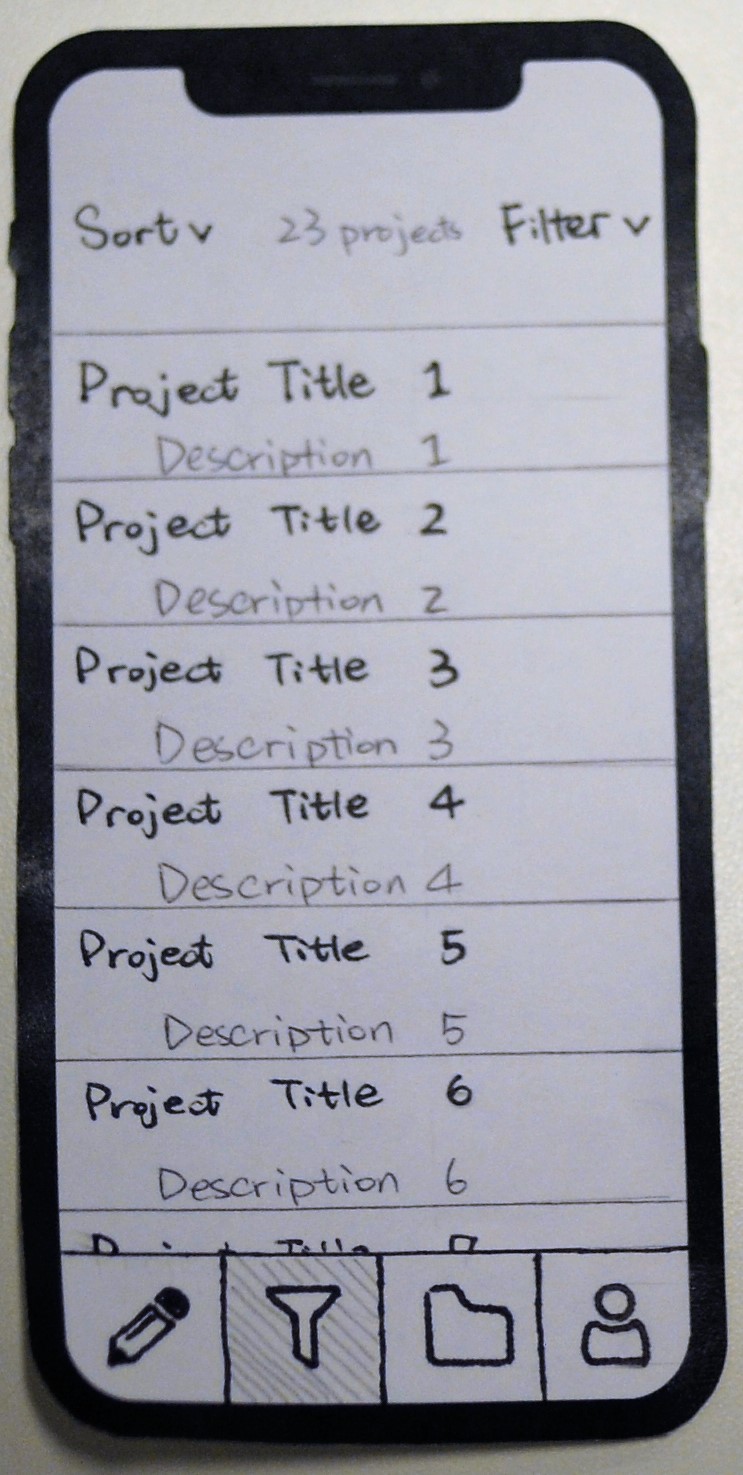 Sort v 23 projects Filter v
Project Title 1
Description 1
Project Title 2
Description 2
Project Title 3
Description 3
Project Title 4
Description 4
Project Title 5
Description 5
Project Title 6
Description 6